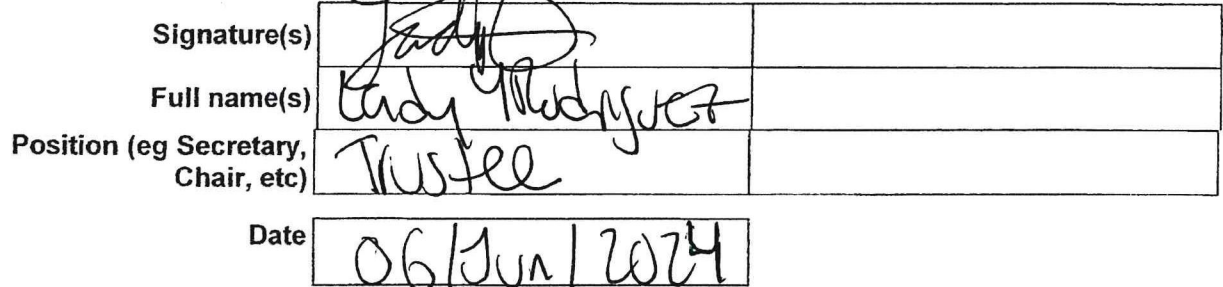 Signature(s)
Full name(s) Rodriguez
Position (eg Secretary,
Chair, etc) Trustee
Date 06/Jun/2024